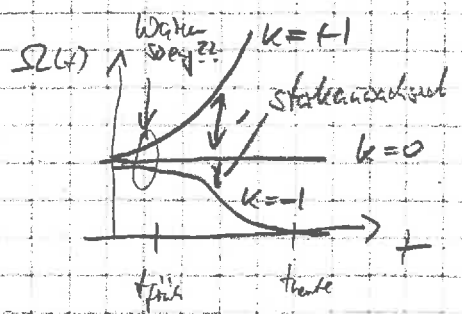 Warum
so eng??
Ω(t)
k=+1
stark anwachsend
k=0
k=-1
t
t früh
t heute